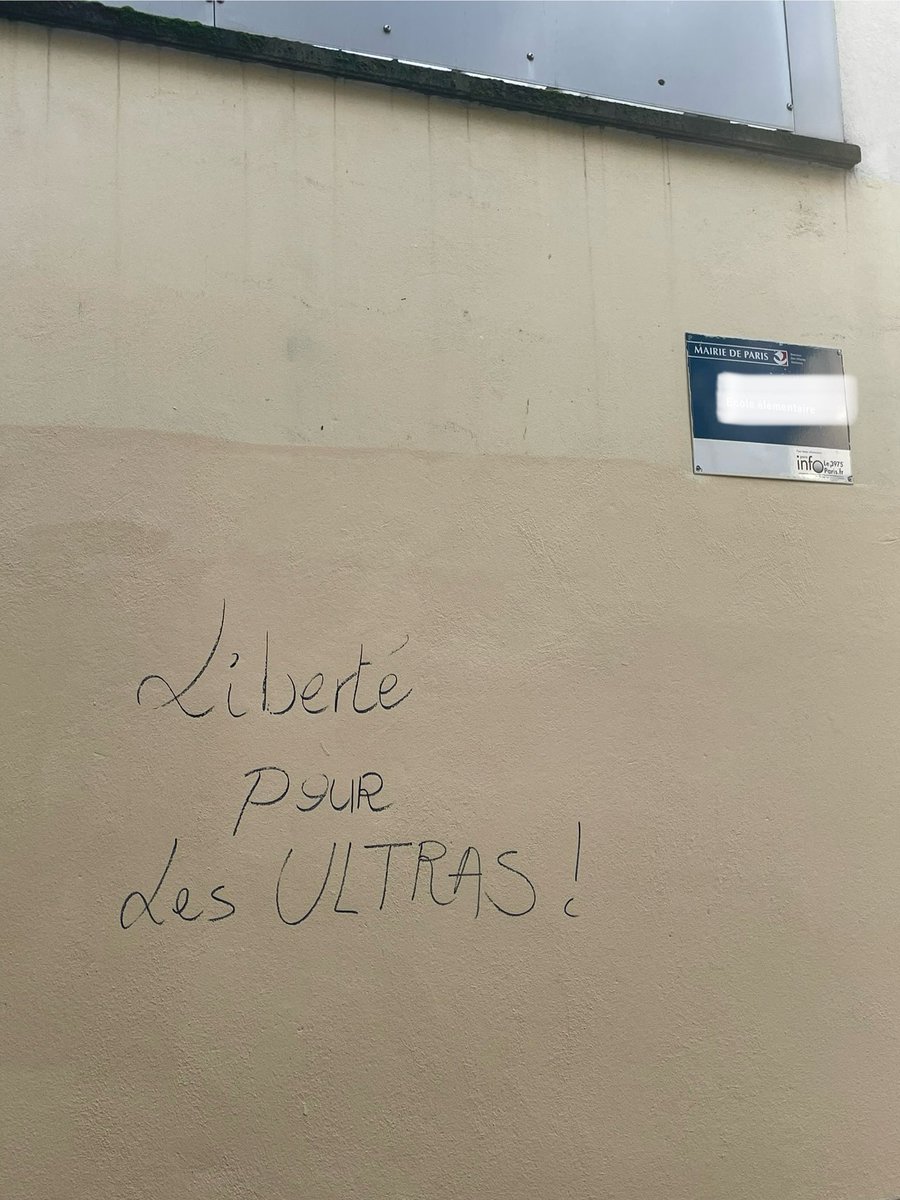 MAIRIE DE PARIS
École élémentaire
info Le 3975
Paris.fr
Liberté
pour
Les ULTRAS !